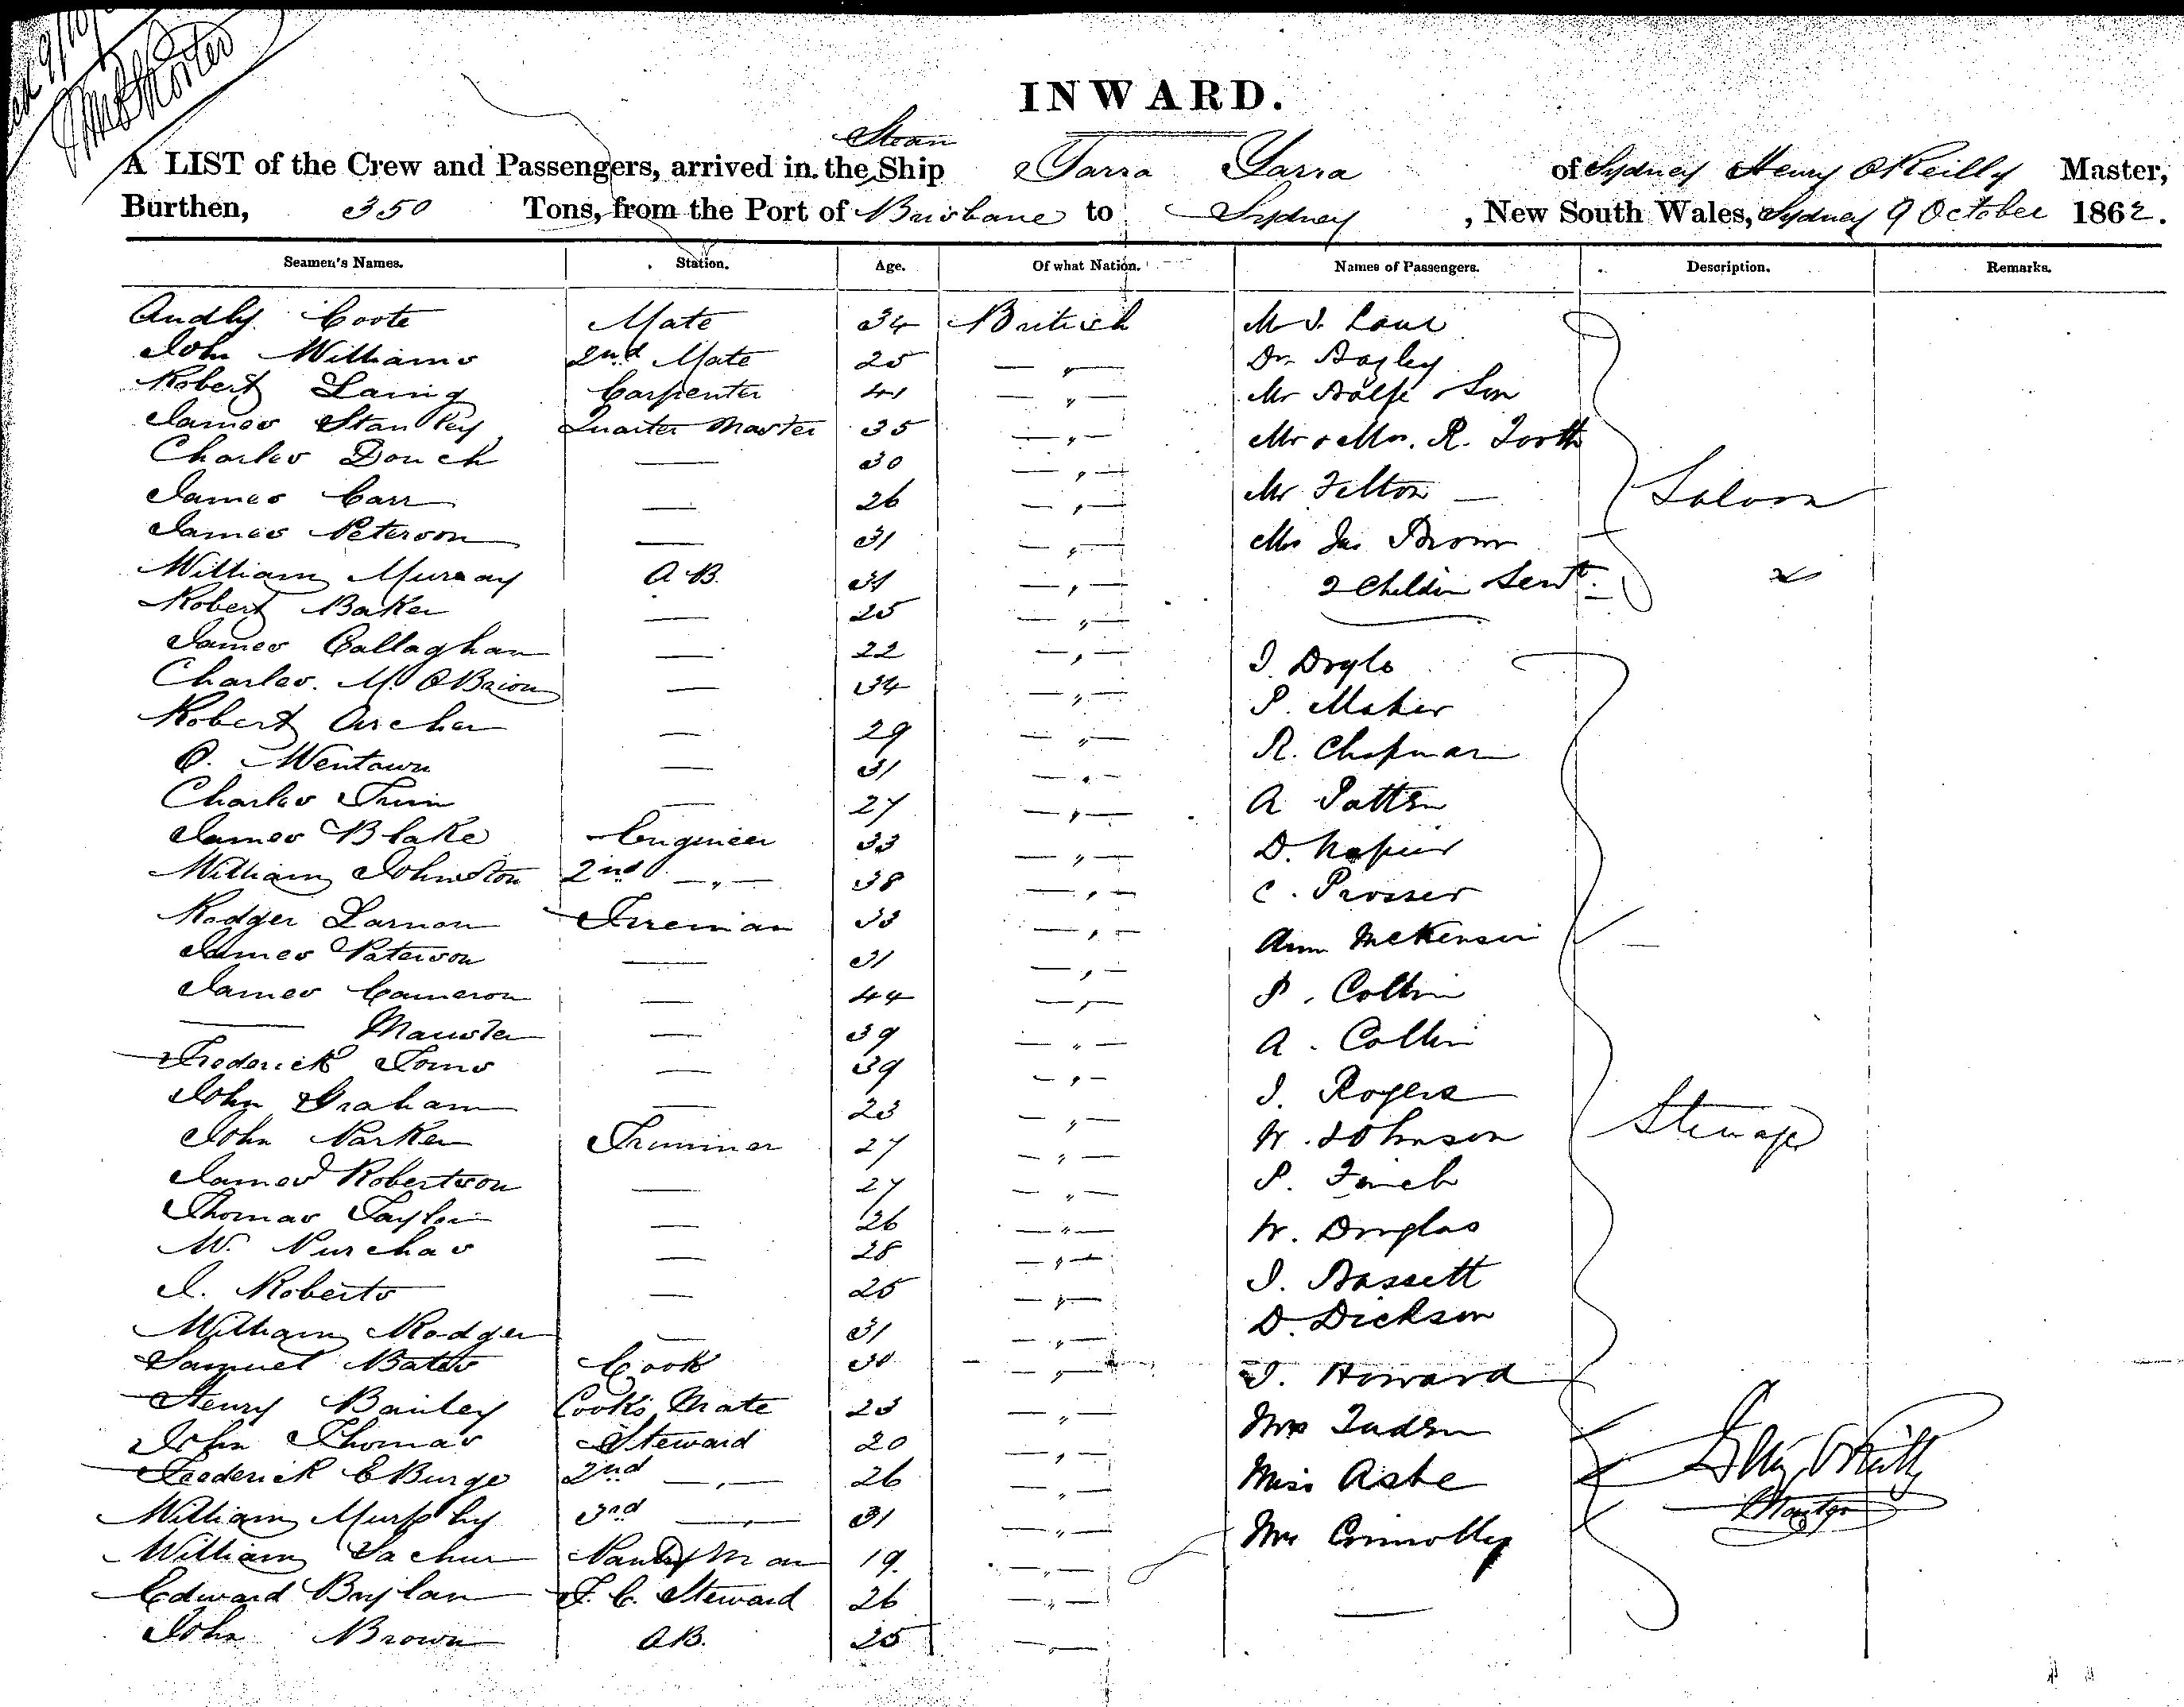 INWARD.
Steam
A LIST of the Crew and Passengers, arrived in the Ship Yarra Yarra of Sydney Henry O'Reilly Master,
Burthen, 350 Tons, from the Port of Brisbane to Sydney, New South Wales, Sydney 9 October 1862.
Seamen's Names. Station. Age. Of what Nation. Names of Passengers. Description. Remarks.
Audly Coote Mate 34 British
John Williams 2nd Mate 25 — " —
Robert Laing Carpenter 41 — " —
James Stankey Quarter Master 35 — " —
Charles Douch — 30 — " —
James Carr — 26 — " —
James Peterson — 31 — " —
William Murray A.B. 31 — " —
Robert Baker — 25 — " —
James Callaghan — 22 — " —
Charles. M. OBrion — 34 — " —
Robert Archer — 29 — " —
Wentown — 31 — " —
Charles — 27 — " —
James Blake Engineer 33 — " —
William Johnston 2nd — " — 38 — " —
Rodger Larnon Fireman 33 — " —
James Paterson — 31 — " —
James Cameron — 44 — " —
— — 39 — " —
Frederick Toms — 39 — " —
John Graham — 23 — " —
John Parker Trimmer 27 — " —
James Robertson — 27 — " —
Thomas Taylor — 26 — " —
W. Purchas — 28 — " —
I. Roberts — 25 — " —
William Rodger — 31 — " —
Samuel Bates Cook 30 — " —
Henry Bailey Cooks Mate 23 — " —
John Thomas Steward 20 — " —
Frederick C Burge 2nd — " — 26 — " —
William Murphy 3rd — " — 31 — " —
William Pantry Man 19 — " —
Edward Boylan F. C. Steward 26 — " —
John Brown AB. 25 — " —
Dr. Bagley
Mr Rolfe Son
Mr & Mrs. R. Tooth
Mr Felton —
Mrs Jas Brown
2 Children Servt.
Saloon
J. Doyle
P. Maher
R. Chapman
A Patten
D. Napier
C. Prosser
Ann McKensie
P. Collin
A. Collin
J. Rogers
W. Johnson
P. Finch
W. Douglas
J. Bassett
D. Dickson
J. Howard
Mrs
Miss Ashe
Mrs Connolly
Steerage
Hy O'Reilly
Master